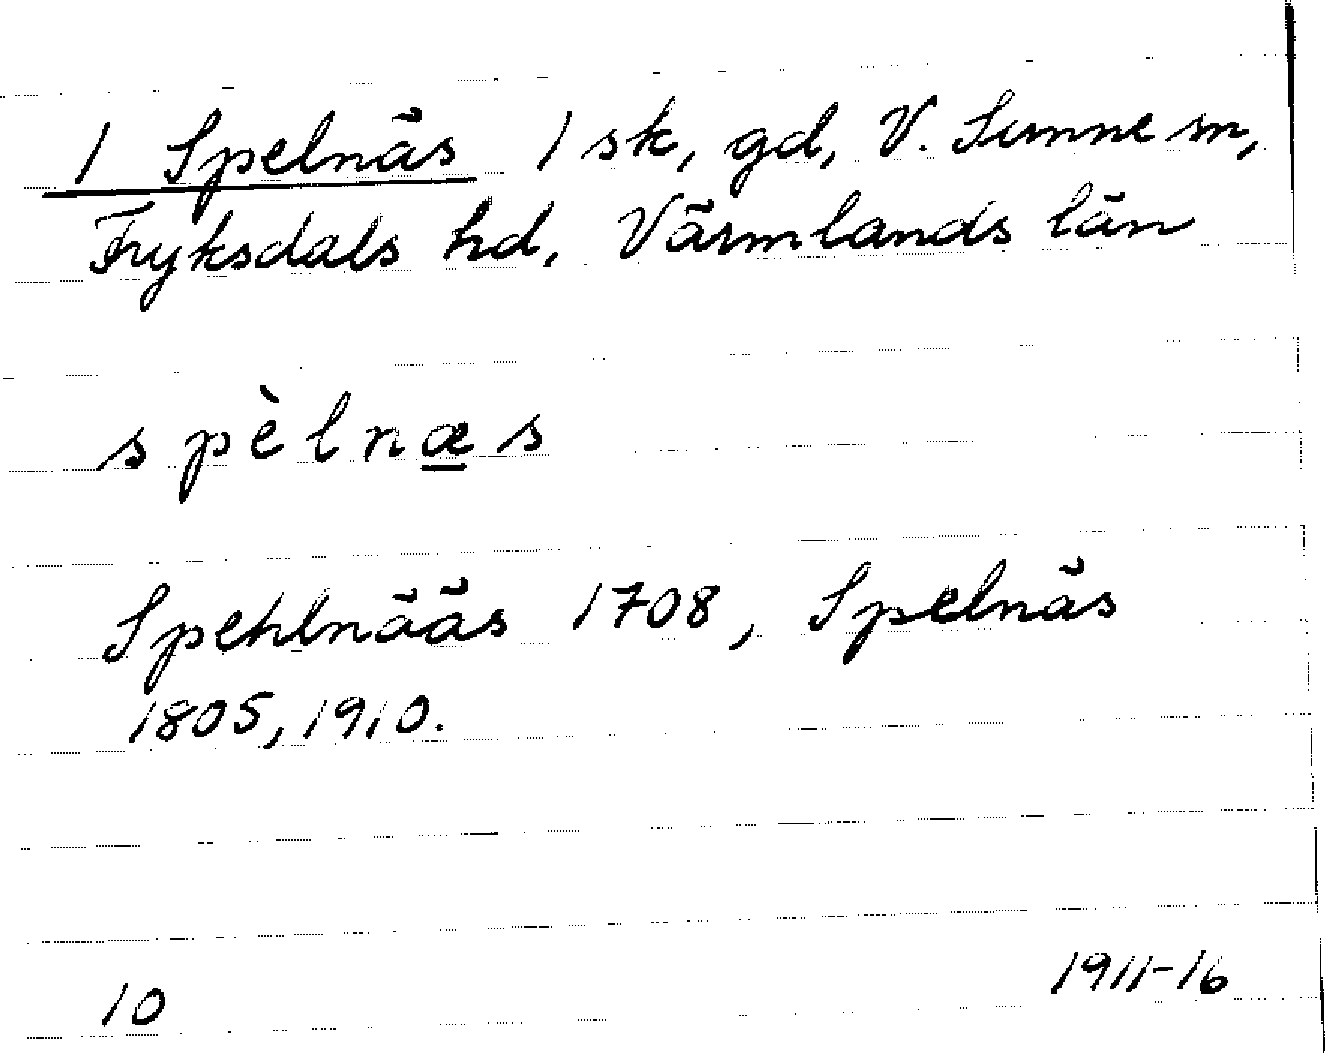 1 Spelnäs 1 sk, gd, V. Sunne sn,
Fryksdals hd, Värmlands län
spèlnæ̲s
Spehlnääs 1708, Spelnäs
1805, 1910.
10
1911-16